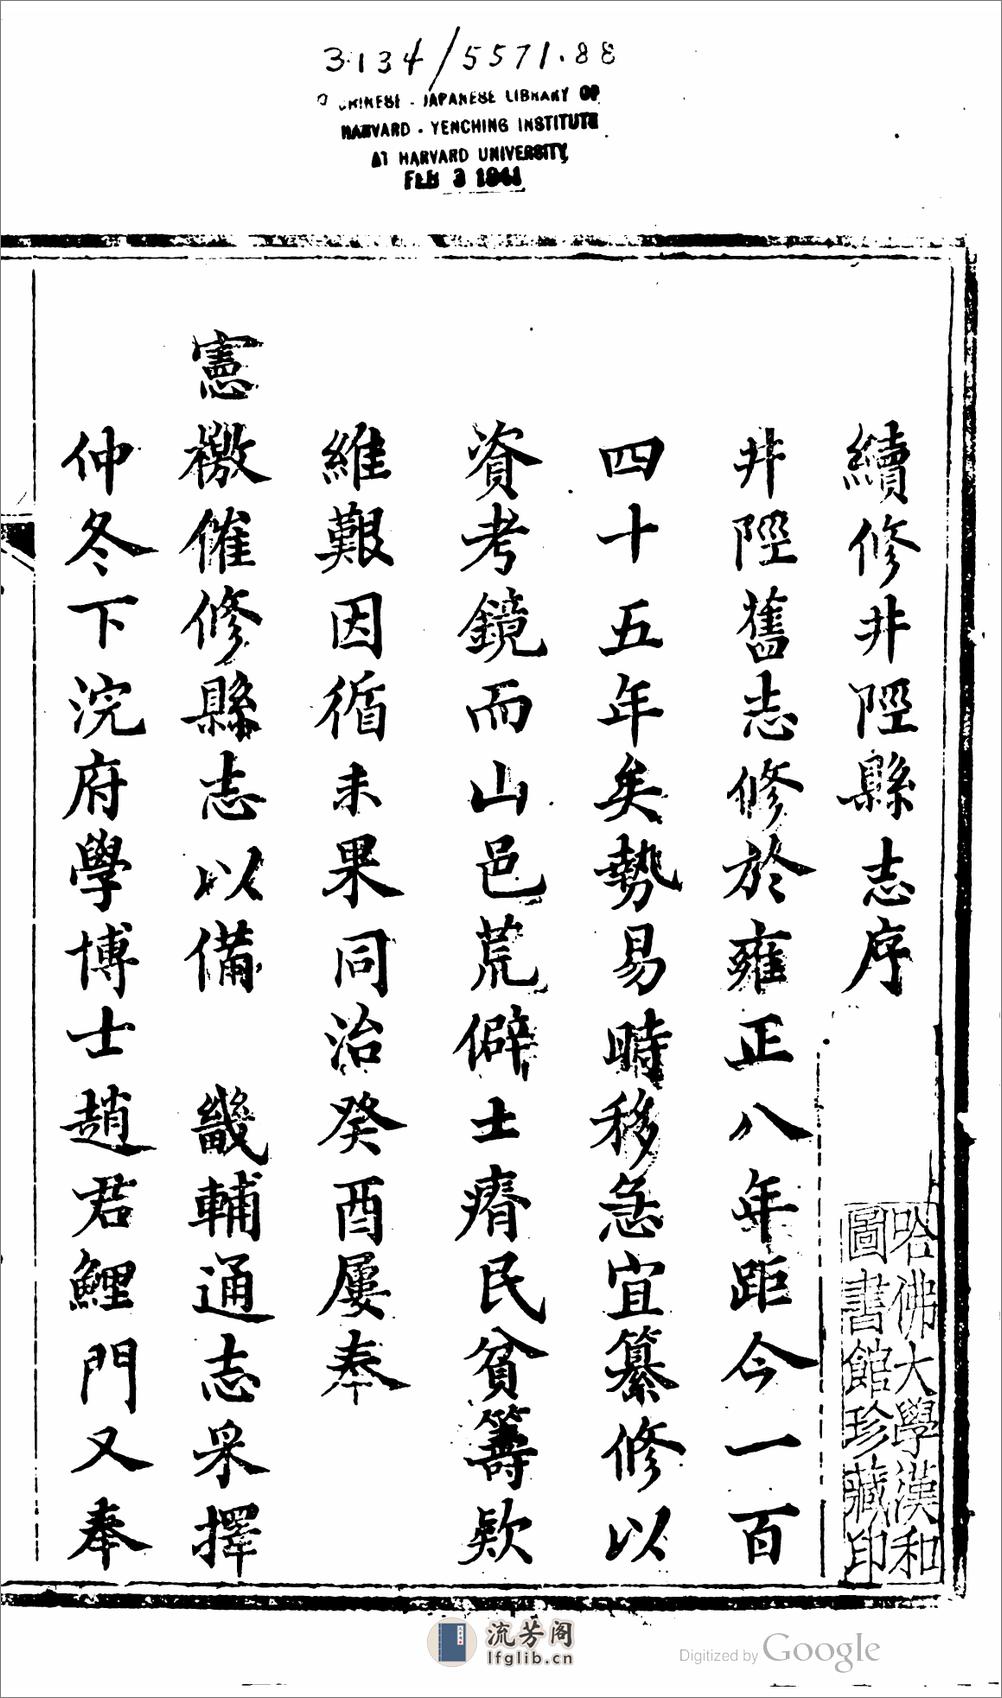 3134/5571.88
CHINESE - JAPANESE LIBRARY OF
HARVARD - YENCHING INSTITUTE
AT HARVARD UNIVERSITY
FEB 3 1941
續修井陘縣志序
井陘舊志修於雍正八年距今一百
四十五年矣勢易時移急宜纂修以
資考鏡而山邑荒僻士瘠民貧籌欵
維艱因循未果同治癸酉屢奉
憲檄催修縣志以備 畿輔通志采擇
仲冬下浣府學博士趙君鯉門又奉
哈佛大學漢和
圖書館珍藏印
流芳阁
lfglib.cn
Digitized by Google